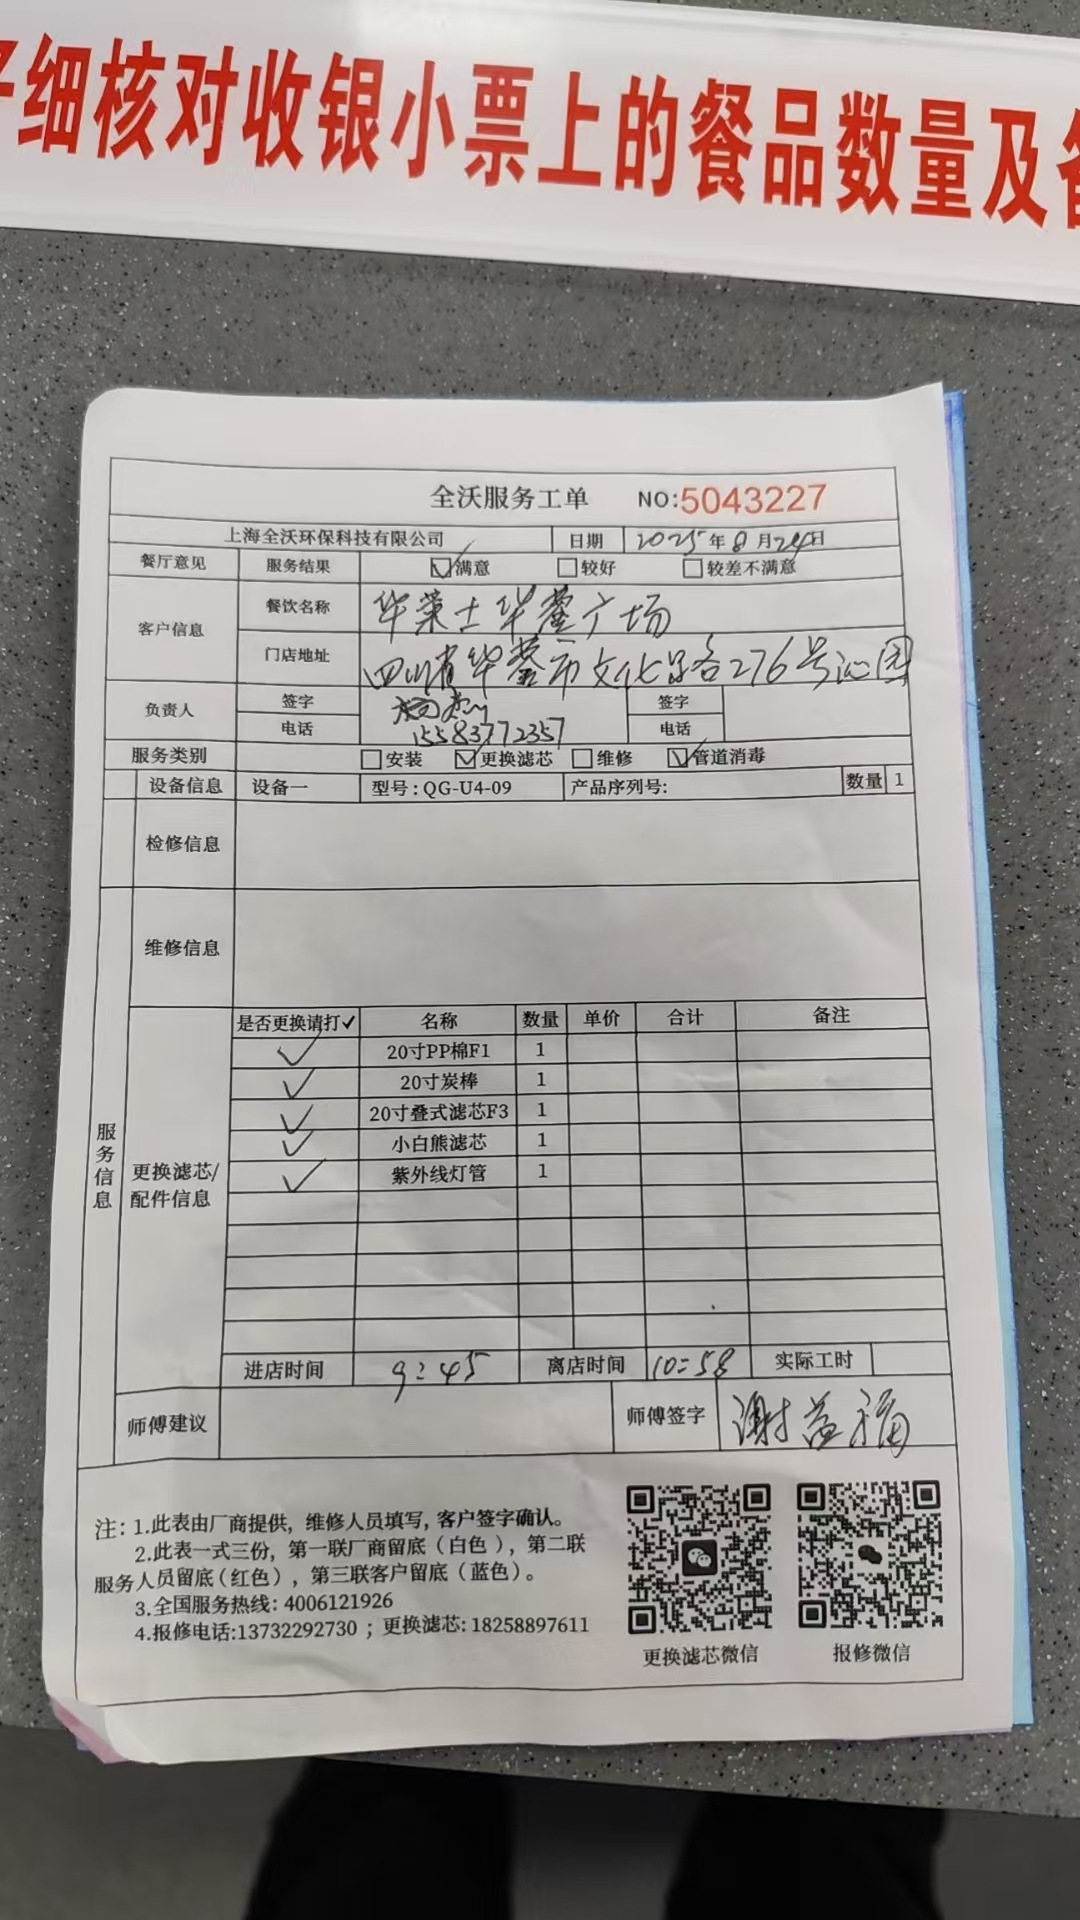 细核对收银小票上的餐品数量及
全沃服务工单 NO:5043227
上海全沃环保科技有限公司 日期 2025年8月24日
餐厅意见 服务结果 ☑满意 □较好 □较差不满意
客户信息 餐饮名称 华莱士华蓥广场
门店地址 四川省华蓥市文化路276号沁园
负责人 签字 签字
电话 15583772357 电话
服务类别 □安装 ☑更换滤芯 □维修 ☑管道消毒
设备信息 设备一 型号:QG-U4-09 产品序列号: 数量 1
检修信息
维修信息
服务信息
更换滤芯/配件信息
是否更换请打✓ 名称 数量 单价 合计 备注
✓ 20寸PP棉F1 1
✓ 20寸炭棒 1
✓ 20寸叠式滤芯F3 1
✓ 小白熊滤芯 1
✓ 紫外线灯管 1
进店时间 9:45 离店时间 10:58 实际工时
师傅建议 师傅签字 谢益福
注: 1.此表由厂商提供, 维修人员填写, 客户签字确认。
2.此表一式三份, 第一联厂商留底(白色), 第二联
服务人员留底(红色), 第三联客户留底(蓝色)。
3.全国服务热线: 4006121926
4.报修电话:13732292730 ; 更换滤芯: 18258897611
更换滤芯微信 报修微信